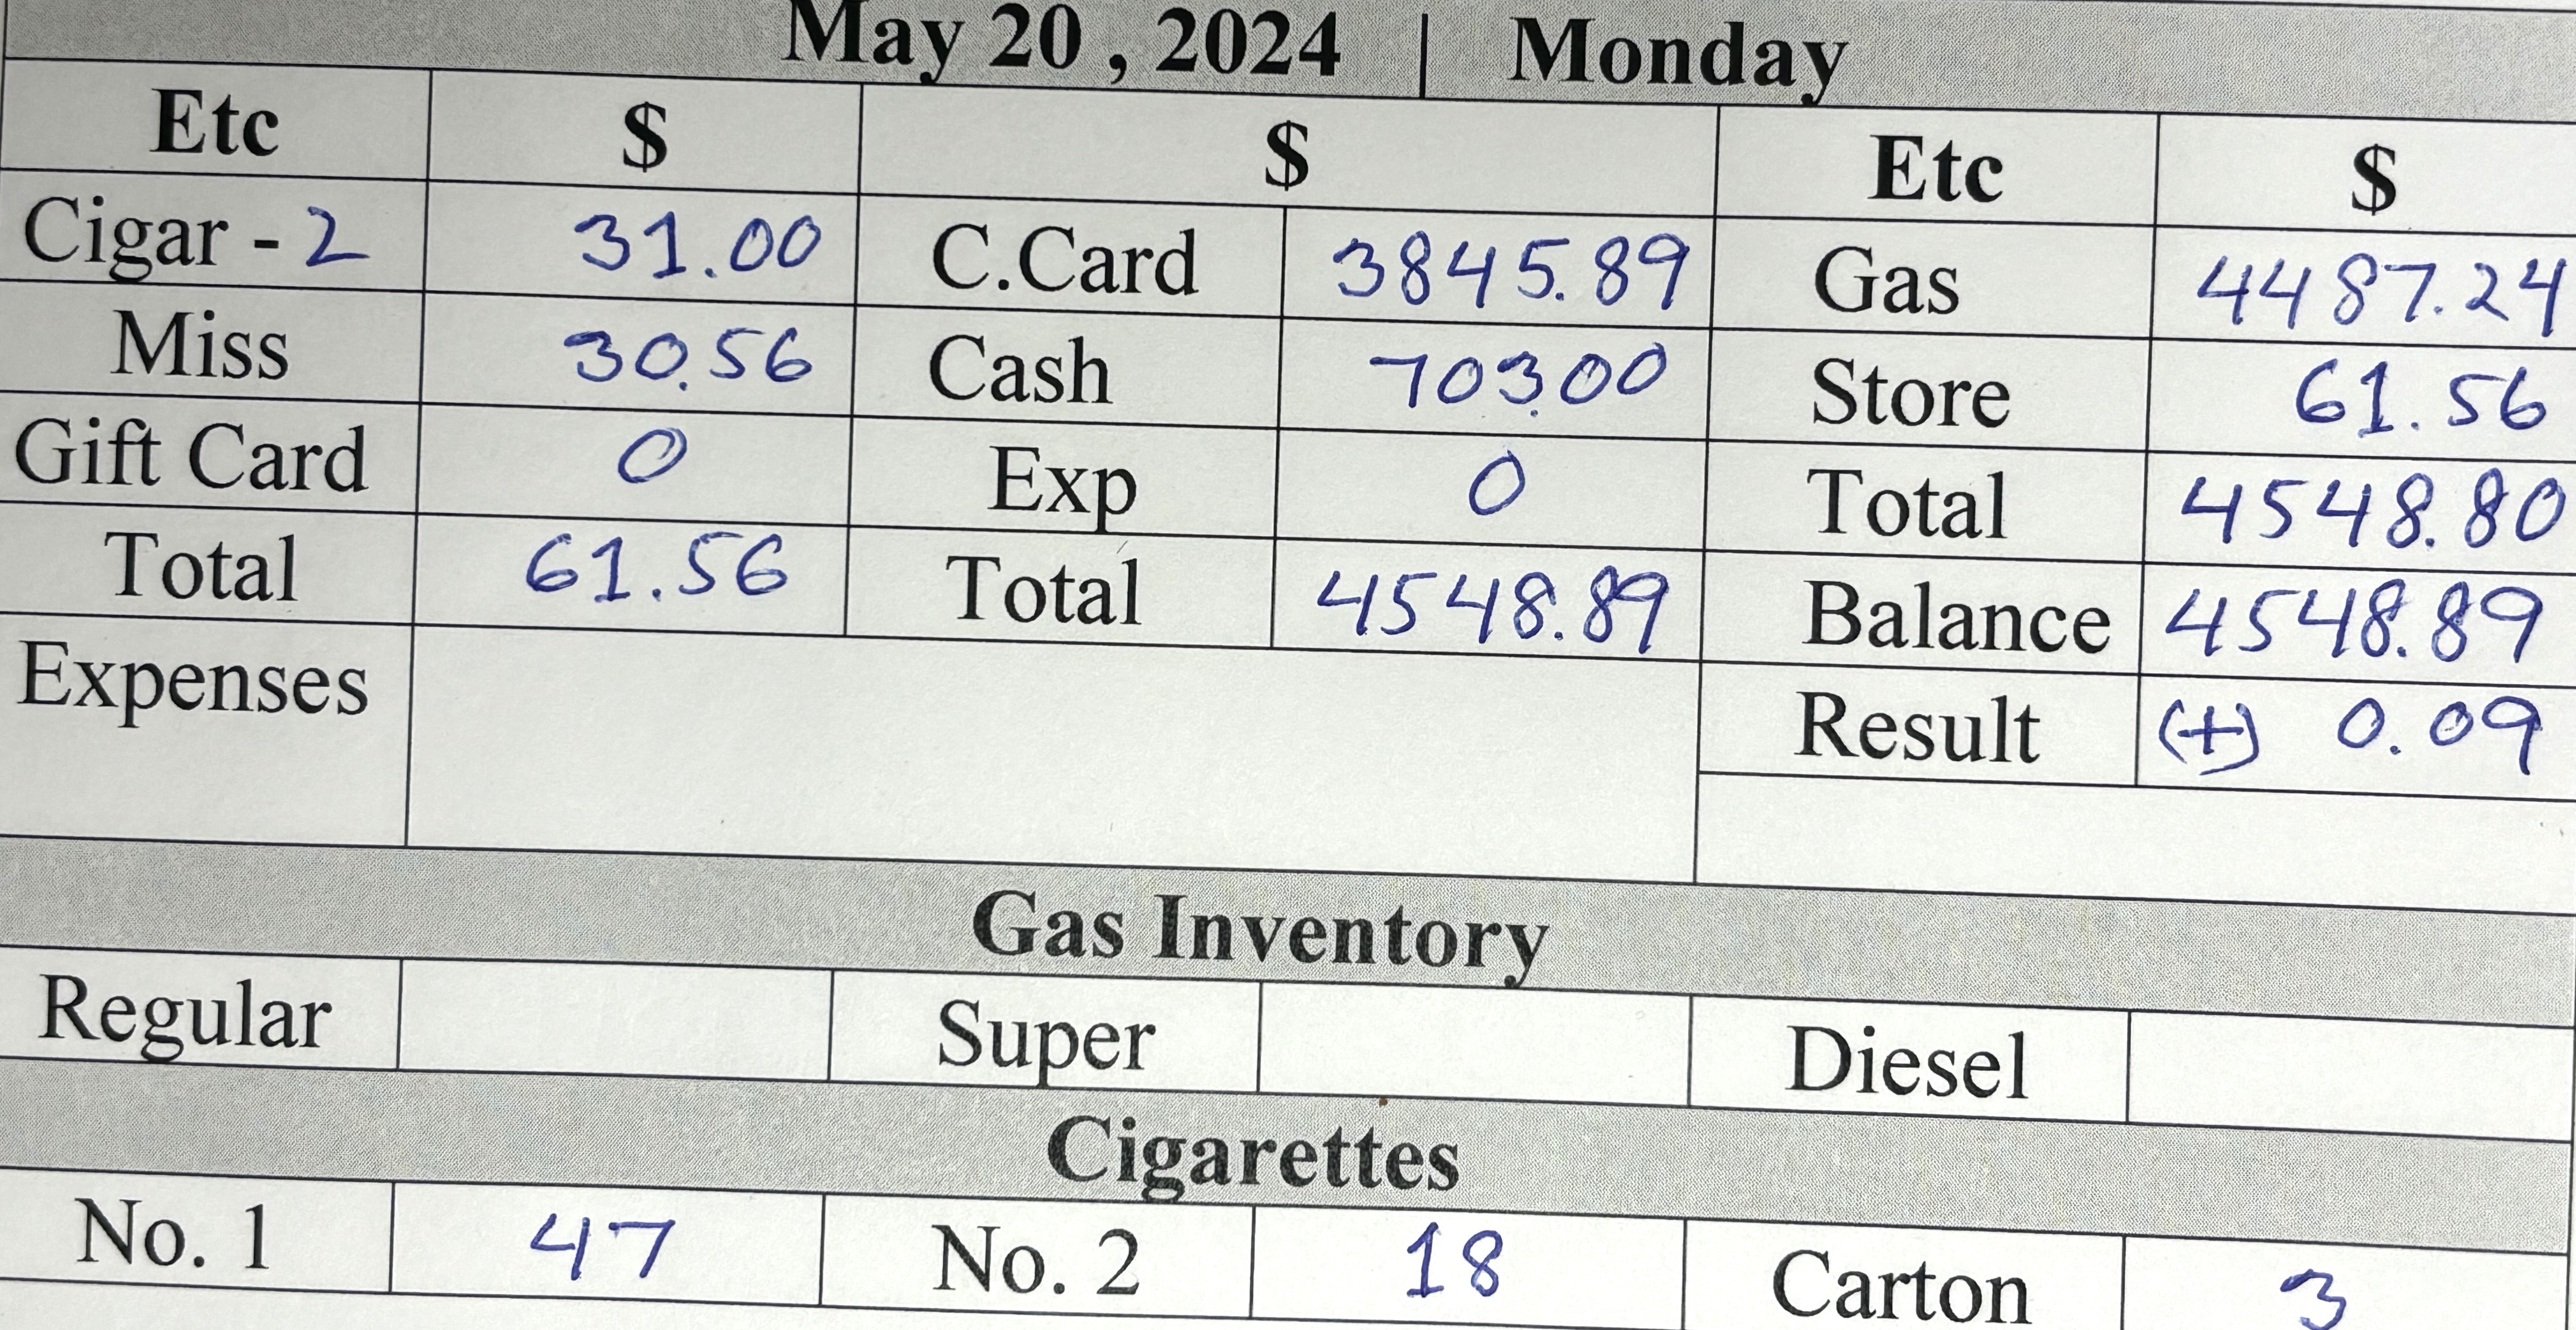 May 20 , 2024 | Monday
Etc $ $ Etc $
Cigar - 2 31.00 C.Card 3845.89 Gas 4487.24
Miss 30.56 Cash 703.00 Store 61.56
Gift Card 0 Exp 0 Total 4548.80
Total 61.56 Total 4548.89 Balance 4548.89
Expenses Result (+) 0.09
Gas Inventory
Regular Super Diesel
Cigarettes
No. 1 47 No. 2 18 Carton 3